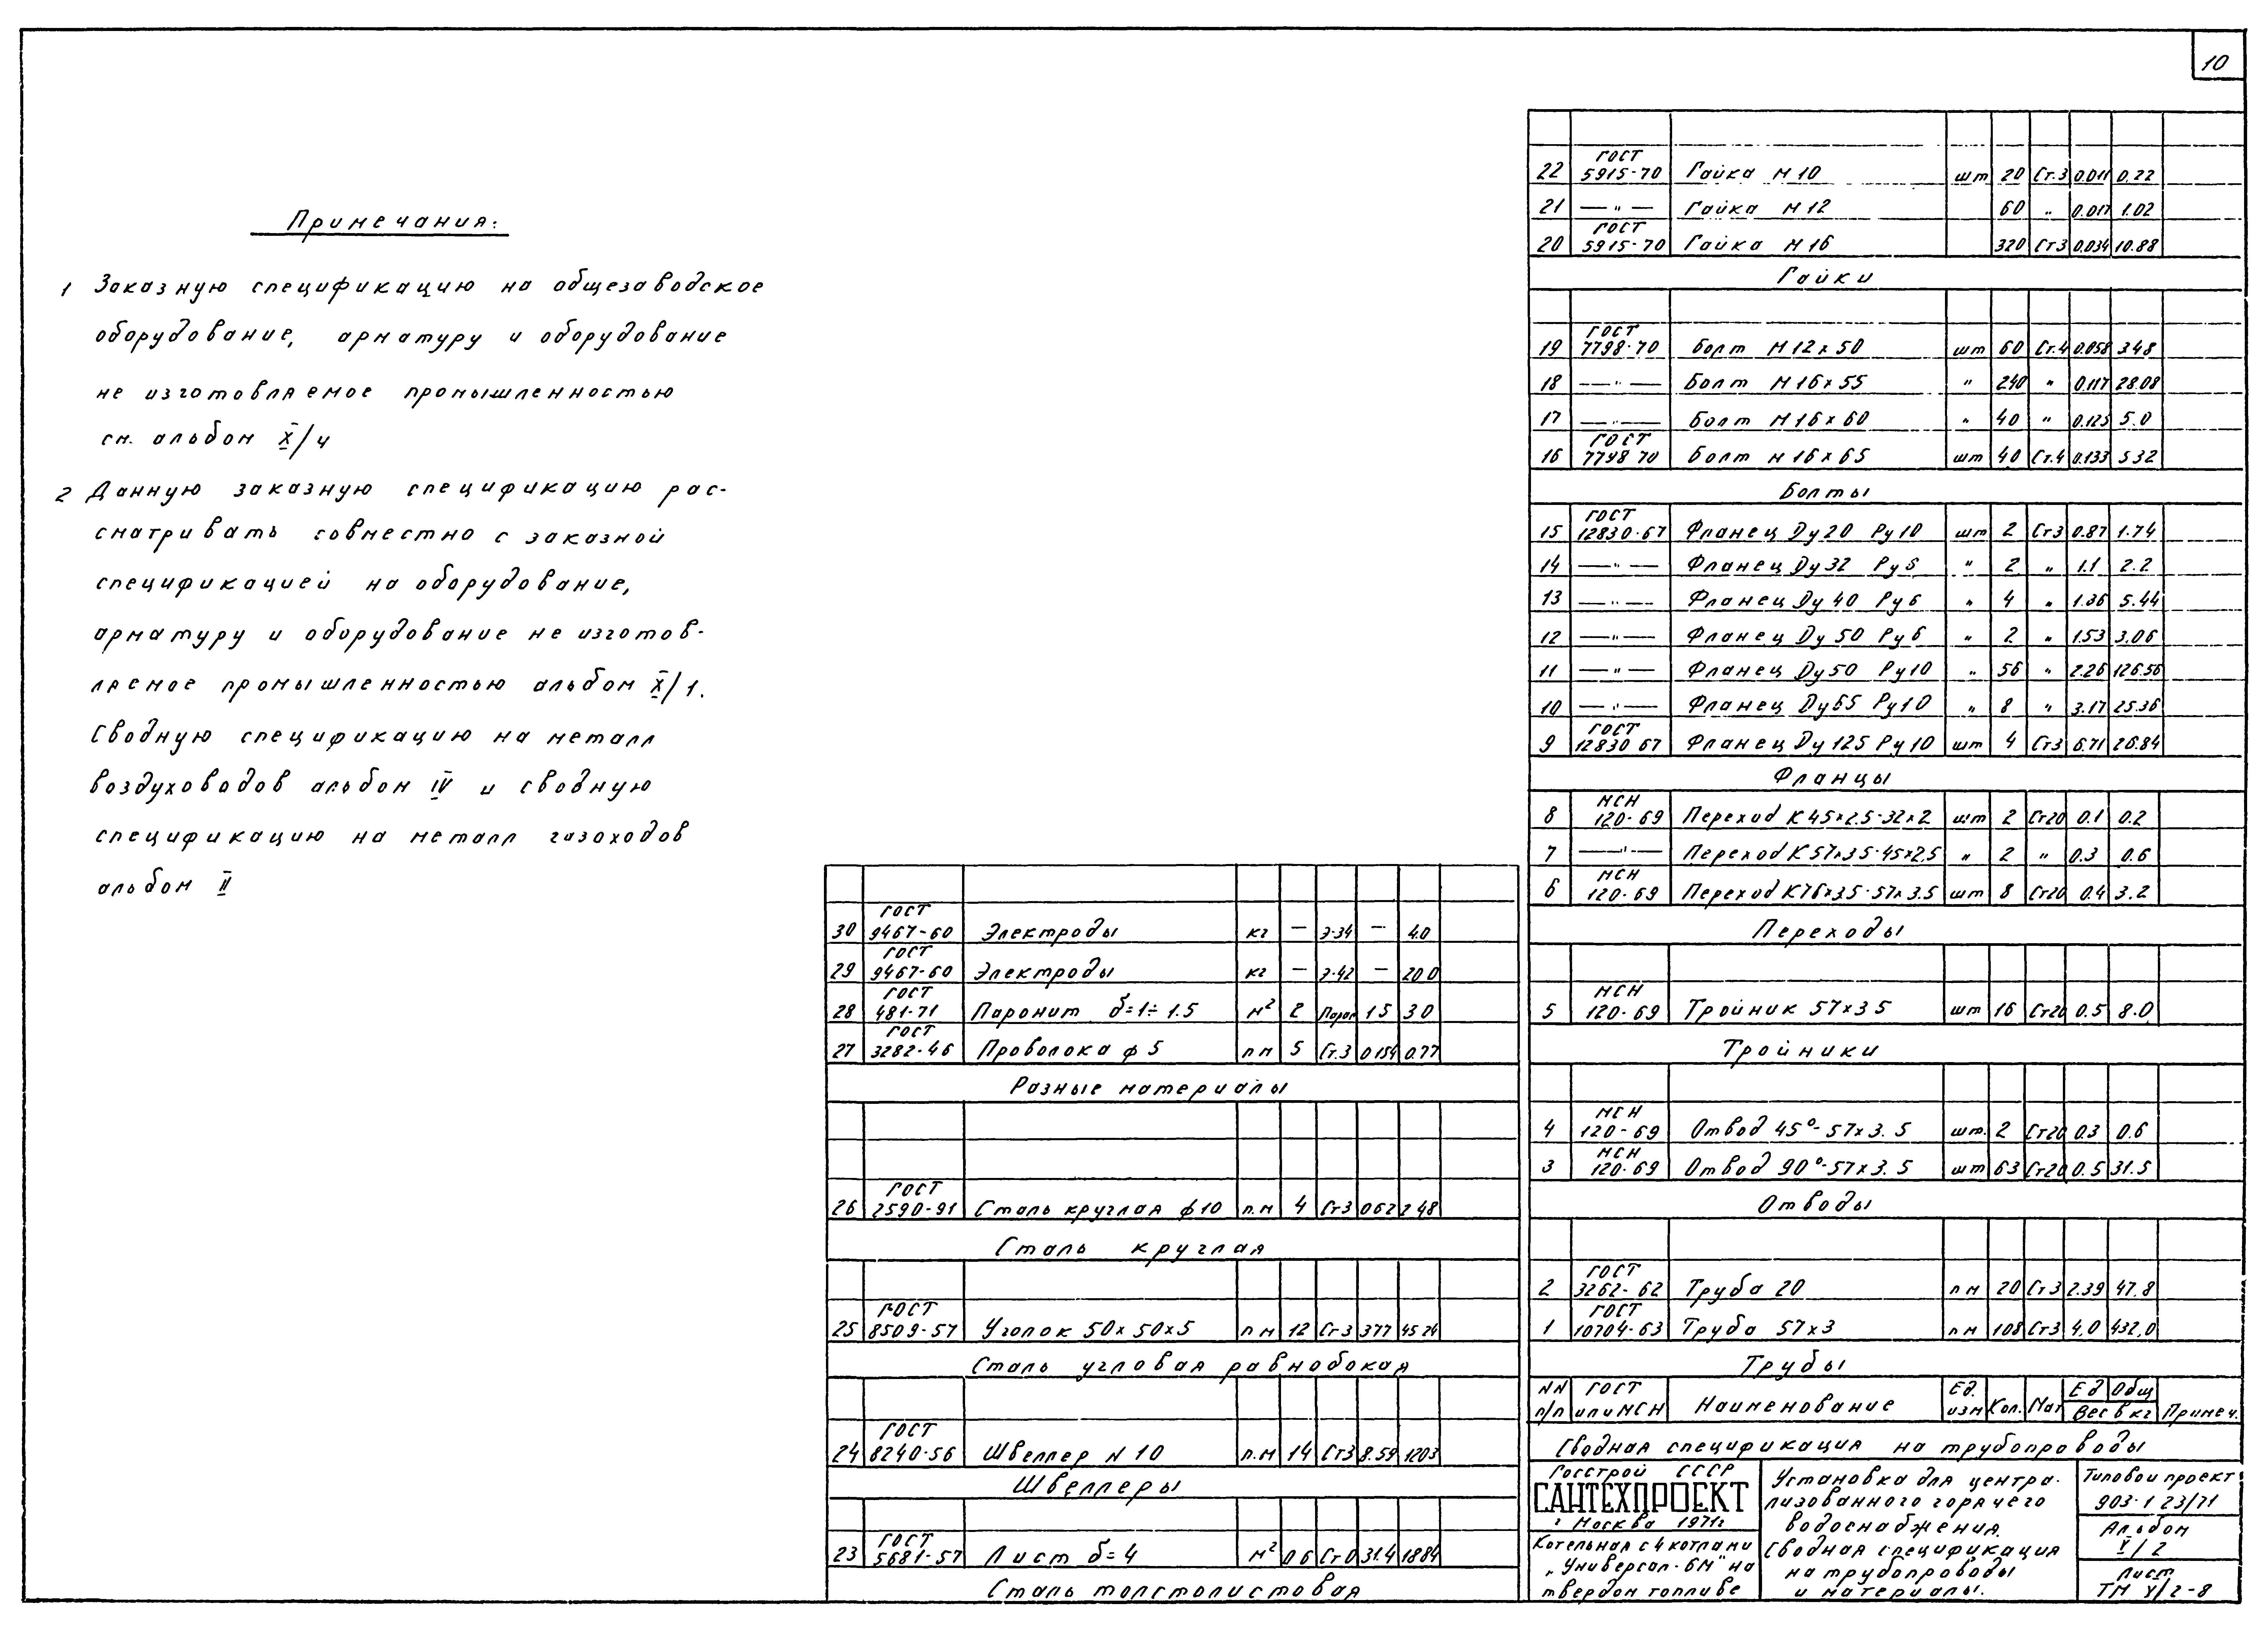 10
Примечания:
1 Заказную спецификацию на общезаводское
оборудование, арматуру и оборудование
не изготовляемое промышленностью
см. альбом X/4
2 Данную заказную спецификацию рас-
сматривать совместно с заказной
спецификацией на оборудование,
арматуру и оборудование не изготов-
ляемое промышленностью альбом X/1.
Сводную спецификацию на металл
воздуховодов альбом IV и сводную
спецификацию на металл газоходов
альбом II
30 ГОСТ 9467-60 Электроды кг — Э-34 — 4.0
29 ГОСТ 9467-60 Электроды кг — Э-42 — 20 0
28 ГОСТ 481-71 Паронит δ=1÷1.5 м² 2 Парон 1 5 3 0
27 ГОСТ 3282-46 Проволока ф 5 п м 5 Ст.3 0 154 0.77
Разные материалы
26 ГОСТ 2590-91 Сталь круглая ф 10 п.м 4 Ст3 0 62 2 48
Сталь круглая
25 ГОСТ 8509-57 Уголок 50х50х5 п м 12 Ст3 377 45 24
Сталь угловая равнобокая
24 ГОСТ 8240-56 Швеллер N 10 п.м 14 Ст3 8.59 1203
Швеллеры
23 ГОСТ 5681-57 Лист δ=4 м² 0 6 Ст0 31.4 18 84
Сталь толстолистовая
22 ГОСТ 5915-70 Гайка М 10 шт 20 Ст.3 0.011 0.22
21 —"— Гайка М 12 60 " 0.017 1.02
20 ГОСТ 5915-70 Гайка М 16 320 Ст3 0.034 10.88
Гайки
19 ГОСТ 7798-70 Болт М 12 х 50 шт 60 Ст.4 0.058 348
18 —"— Болт М 16 х 55 " 240 " 0.117 28.08
17 —"— Болт М 16 х 60 " 40 " 0.125 5.0
16 ГОСТ 7798 70 Болт М 16 х 65 шт 40 Ст.4 0.133 532
Болты
15 ГОСТ 12830-67 Фланец Ду 20 Ру 10 шт 2 Ст3 0.87 1.74
14 —"— Фланец Ду 32 Ру 6 " 2 " 1.1 2.2
13 —"— Фланец Ду 40 Ру 6 " 4 " 1.36 5.44
12 —"— Фланец Ду 50 Ру 6 " 2 " 1.53 3.06
11 —"— Фланец Ду 50 Ру 10 " 56 " 2.26 126.56
10 —"— Фланец Ду 65 Ру 10 " 8 " 3.17 25.36
9 ГОСТ 12830 67 Фланец Ду 125 Ру 10 шт 4 Ст3 6.71 26.84
Фланцы
8 МСН 120-69 Переход К 45х2.5-32х2 шт 2 Ст20 0.1 0.2
7 —"— Переход К 57х3 5-45х2.5 " 2 " 0.3 0.6
6 МСН 120-69 Переход К 76х3.5-57х3.5 шт 8 Ст20 0.4 3.2
Переходы
5 МСН 120-69 Тройник 57х3 5 шт 16 Ст20 0.5 8.0
Тройники
4 МСН 120-69 Отвод 45°-57х3.5 шт. 2 Ст20 0.3 0.6
3 МСН 120-69 Отвод 90°-57х3.5 шт 63 Ст20 0.5 31.5
Отводы
2 ГОСТ 3262-62 Труба 20 п м 20 Ст3 2.39 47.8
1 ГОСТ 10704-63 Труба 57х3 п м 108 Ст3 4.0 432.0
Трубы
NN п/п ГОСТ или МСН Наименование Ед. изм Кол. Мат Ед Общ Вес в кг Примеч.
Сводная спецификация на трубопроводы
Госстрой СССР
САНТЕХПРОЕКТ
г Москва 1971г
Котельная с 4 котлами
„Универсал-6М" на
твердом топливе
Установка для центра-
лизованного горячего
водоснабжения.
Сводная спецификация
на трубопроводы
и материалы.
Типовой проект
903-1 23/71
Альбом
V/2
Лист
ТМ V/2-8